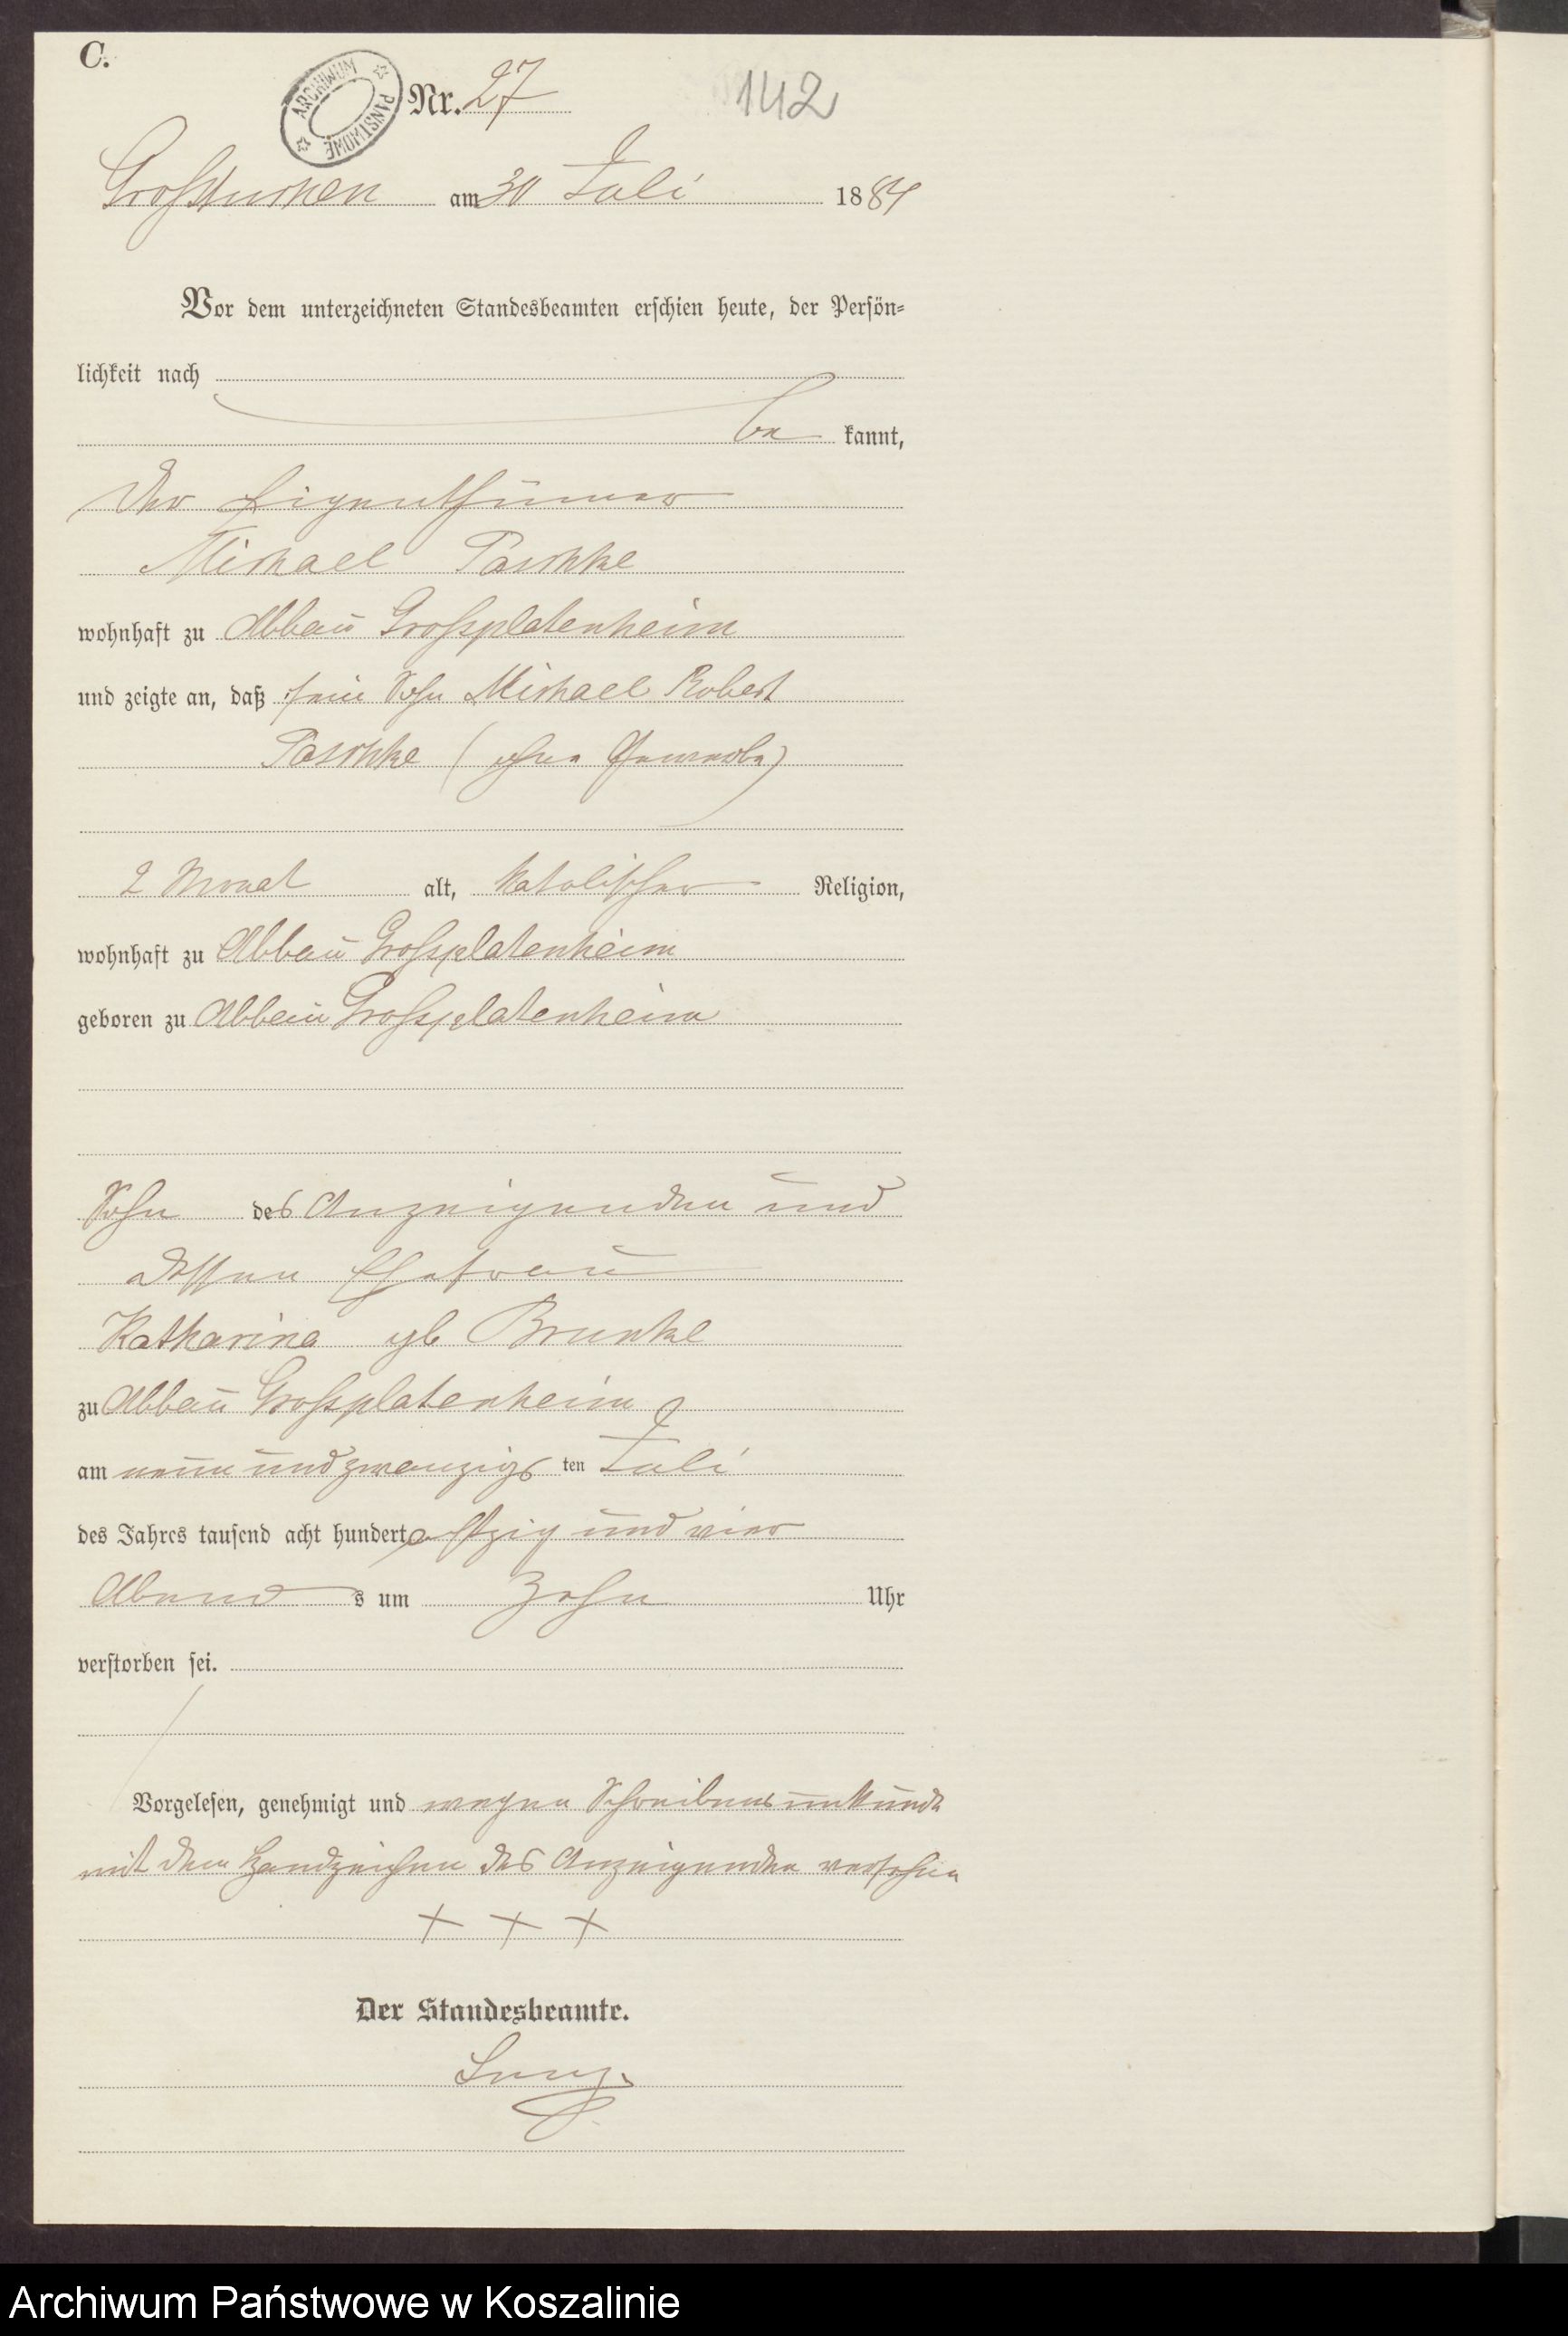 C.
ARCHIWUM PAŃSTWOWE
Nr. 27
142
Großtuchen am 30 Juli 1884
Vor dem unterzeichneten Standesbeamten erschien heute, der Persön-
lichkeit nach
be kannt,
der Eigenthümer
Michael Paschke
wohnhaft zu Abbau Großplatenheim
und zeigte an, daß sein Sohn Michael Robert
Paschke (ohne Gewerbe)
2 Monat alt, katolischer Religion,
wohnhaft zu Abbau Großplatenheim
geboren zu Abbau Großplatenheim
Sohn des Anzeigenden und
dessen Ehefrau
Katharina gb Brunke
zu Abbau Großplatenheim
am neun und zwanzigs ten Juli
des Jahres tausend acht hundert achtzig und vier
Abend s um Zehn Uhr
verstorben sei.
Vorgelesen, genehmigt und wegen Schreibensunkunde
mit dem Handzeichen des Anzeigenden versehen
+ + +
Der Standesbeamte.
Archiwum Państwowe w Koszalinie